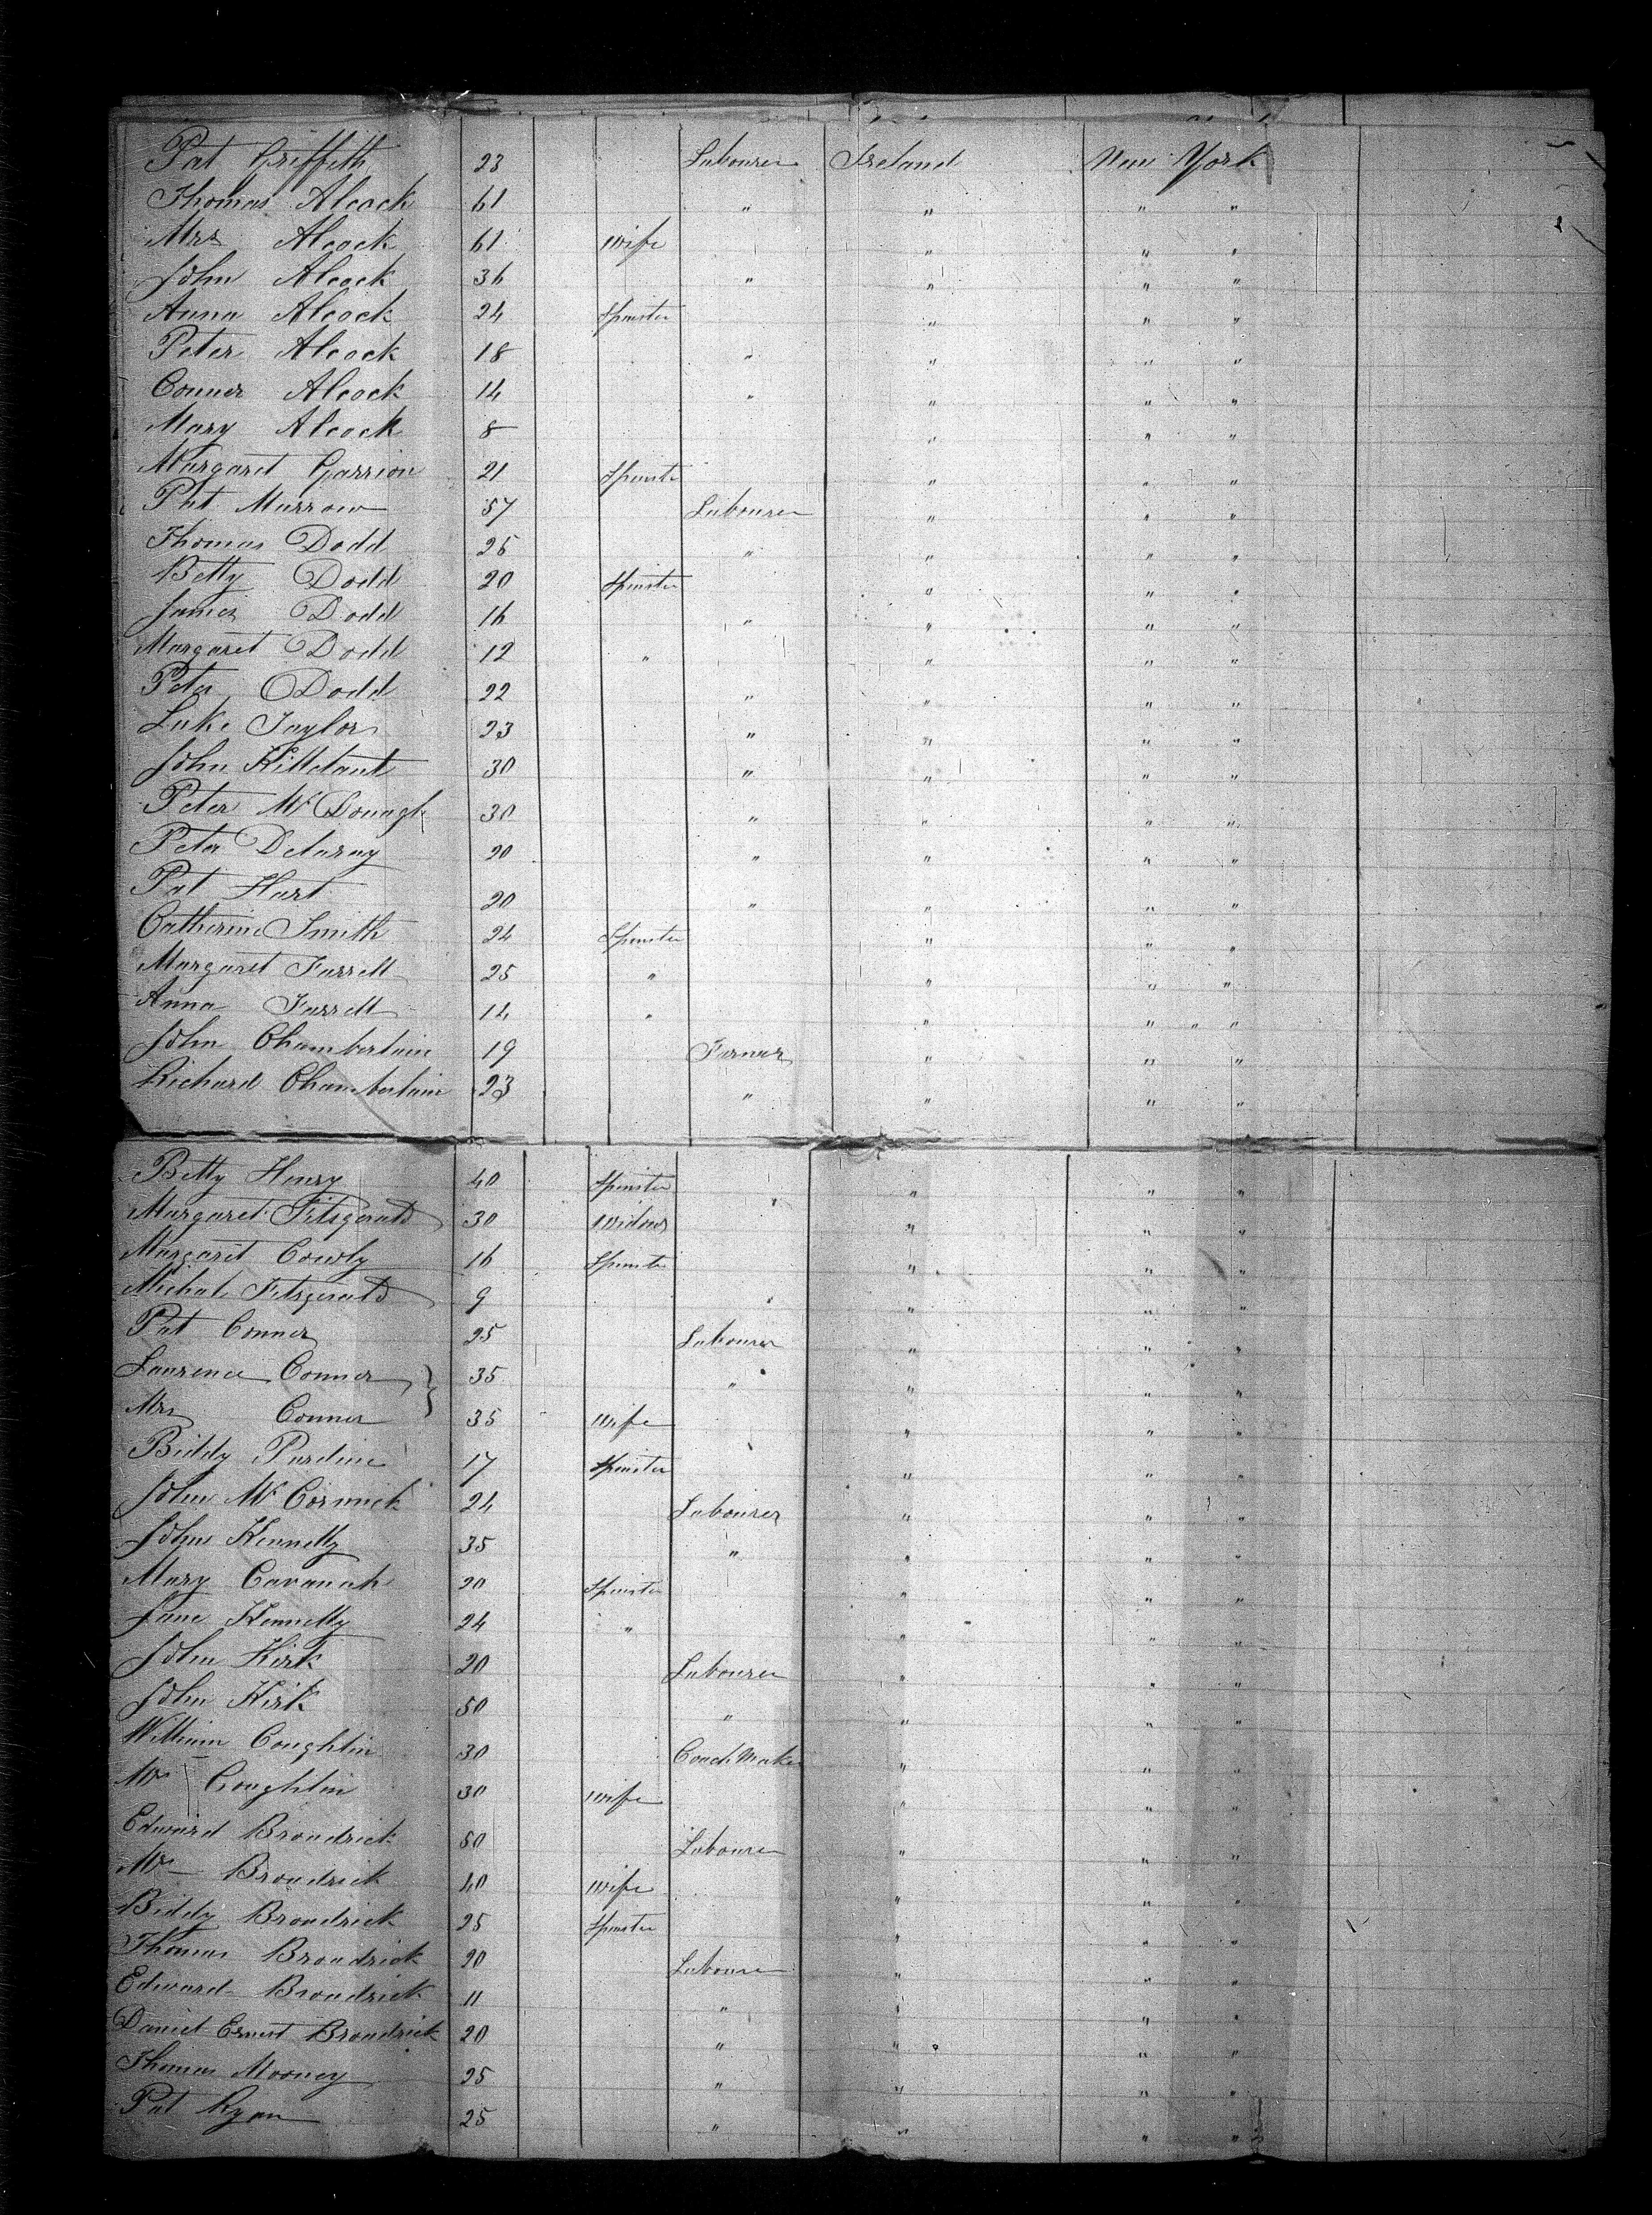 Pat Griffeth 23 Labourer Ireland New York
Thomas Alcock 61 " " " "
Mrs Alcock 61 Wife " " "
John Alcock 36 " " " "
Anna Alcock 24 Spinster " " "
Peter Alcock 18 " " " "
Conner Alcock 14 " " " "
Mary Alcock 8 " " "
Margaret Garrion 21 Spinster " " "
Pat Murrow 57 Labourer " " "
Thomas Dodd 25 " " " "
Betty Dodd 20 Spinster " " "
James Dodd 16 " " " "
Margaret Dodd 12 " " " "
Peter Dodd 22 " " " "
Luke Taylor 23 " " " "
John 30 " " " "
Peter McDonagh 30 " " " "
Peter Delaray 20 " " " "
Pat Hart 20 " " " "
Catherine Smith 24 Spinster " " "
Margaret Farrell 25 " " " "
Anna Farrell 14 " " " " "
John Chamberlain 19 Farmer " " "
Richard Chamberlain 23 " " " "
Betty Henry 40 Spinster " " "
Margaret Fitsgerald 30 Widow " " "
Margaret Cowly 16 Spinster " " "
Michale Fitsgerald 9 " " "
Pat Conner 25 Labourer " " "
Laurence Conner 35 " " " "
Mrs Conner 35 Wife " " "
Biddy Purdine 17 Spinster " " "
John McCormick 24 Labourer " " "
John Kennelly 35 " " " "
Mary Cavanah 20 Spinster " " "
Jane Kennelly 24 " " " "
John Kirk 20 Labourer " " "
John Kirk 50 " " " "
William Coughlin 30 Coach Maker " " "
Mrs Coughlin 30 Wife " " "
Edward Broudrick 50 Labourer " " "
Mrs Broudrick 40 Wife " " "
Biddy Broudrick 25 Spinster " " "
Thomas Broudrick 20 Labourer " " "
Edward Broudrick 11 " " " "
Daniel Ernest Broudrick 20 " " " "
Thomas Mooney 25 " " " "
Pat Ryan 25 " " " "